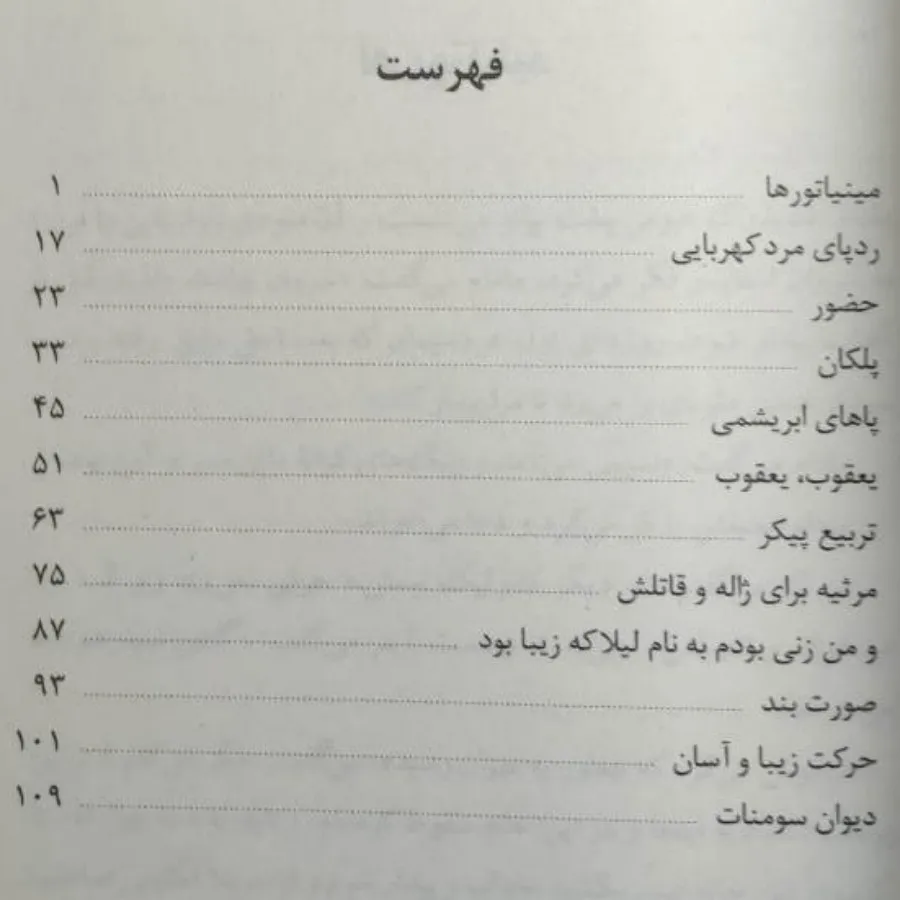 فهرست
مینیاتورها ۱
ردپای مرد کهربایی ۱۷
حضور ۲۳
پلکان ۳۳
پاهای ابریشمی ۴۵
یعقوب، یعقوب ۵۱
تربیع پیکر ۶۳
مرثیه برای ژاله و قاتلش ۷۵
و من زنی بودم به نام لیلا که زیبا بود ۸۷
صورت بند ۹۳
حرکت زیبا و آسان ۱۰۱
دیوان سومنات ۱۰۹